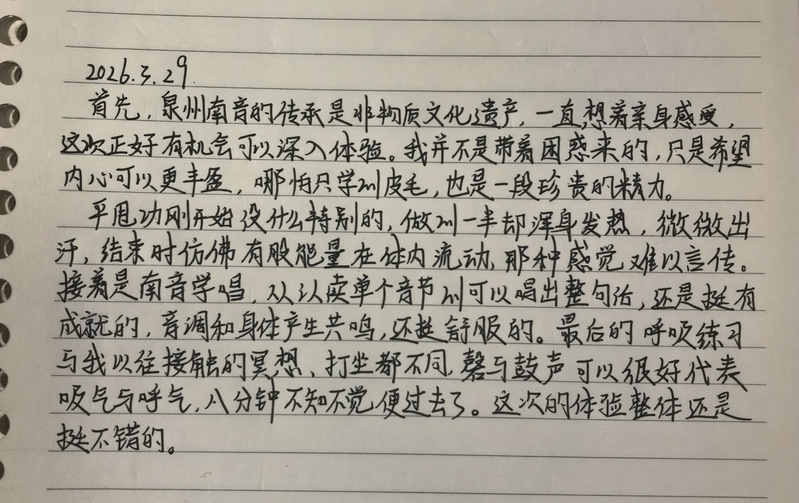 2026.3.29.
首先，泉州南音的传承是非物质文化遗产，一直想着亲身感受，
这次正好有机会可以深入体验。我并不是带着困惑来的，只是希望
内心可以更丰盈，哪怕只学到皮毛，也是一段珍贵的精力。
平甩功刚开始没什么特别的，做到一半却浑身发热，微微出
汗，结束时仿佛有股能量在体内流动，那种感觉难以言传。
接着是南音学唱，从认读单个音节到可以唱出整句话，还是挺有
成就的，音调和身体产生共鸣，还挺舒服的。最后的呼吸练习
与我以往接触的冥想、打坐都不同，磬与鼓声可以很好代表
吸气与呼气，八分钟不知不觉便过去了。这次的体验整体还是
挺不错的。